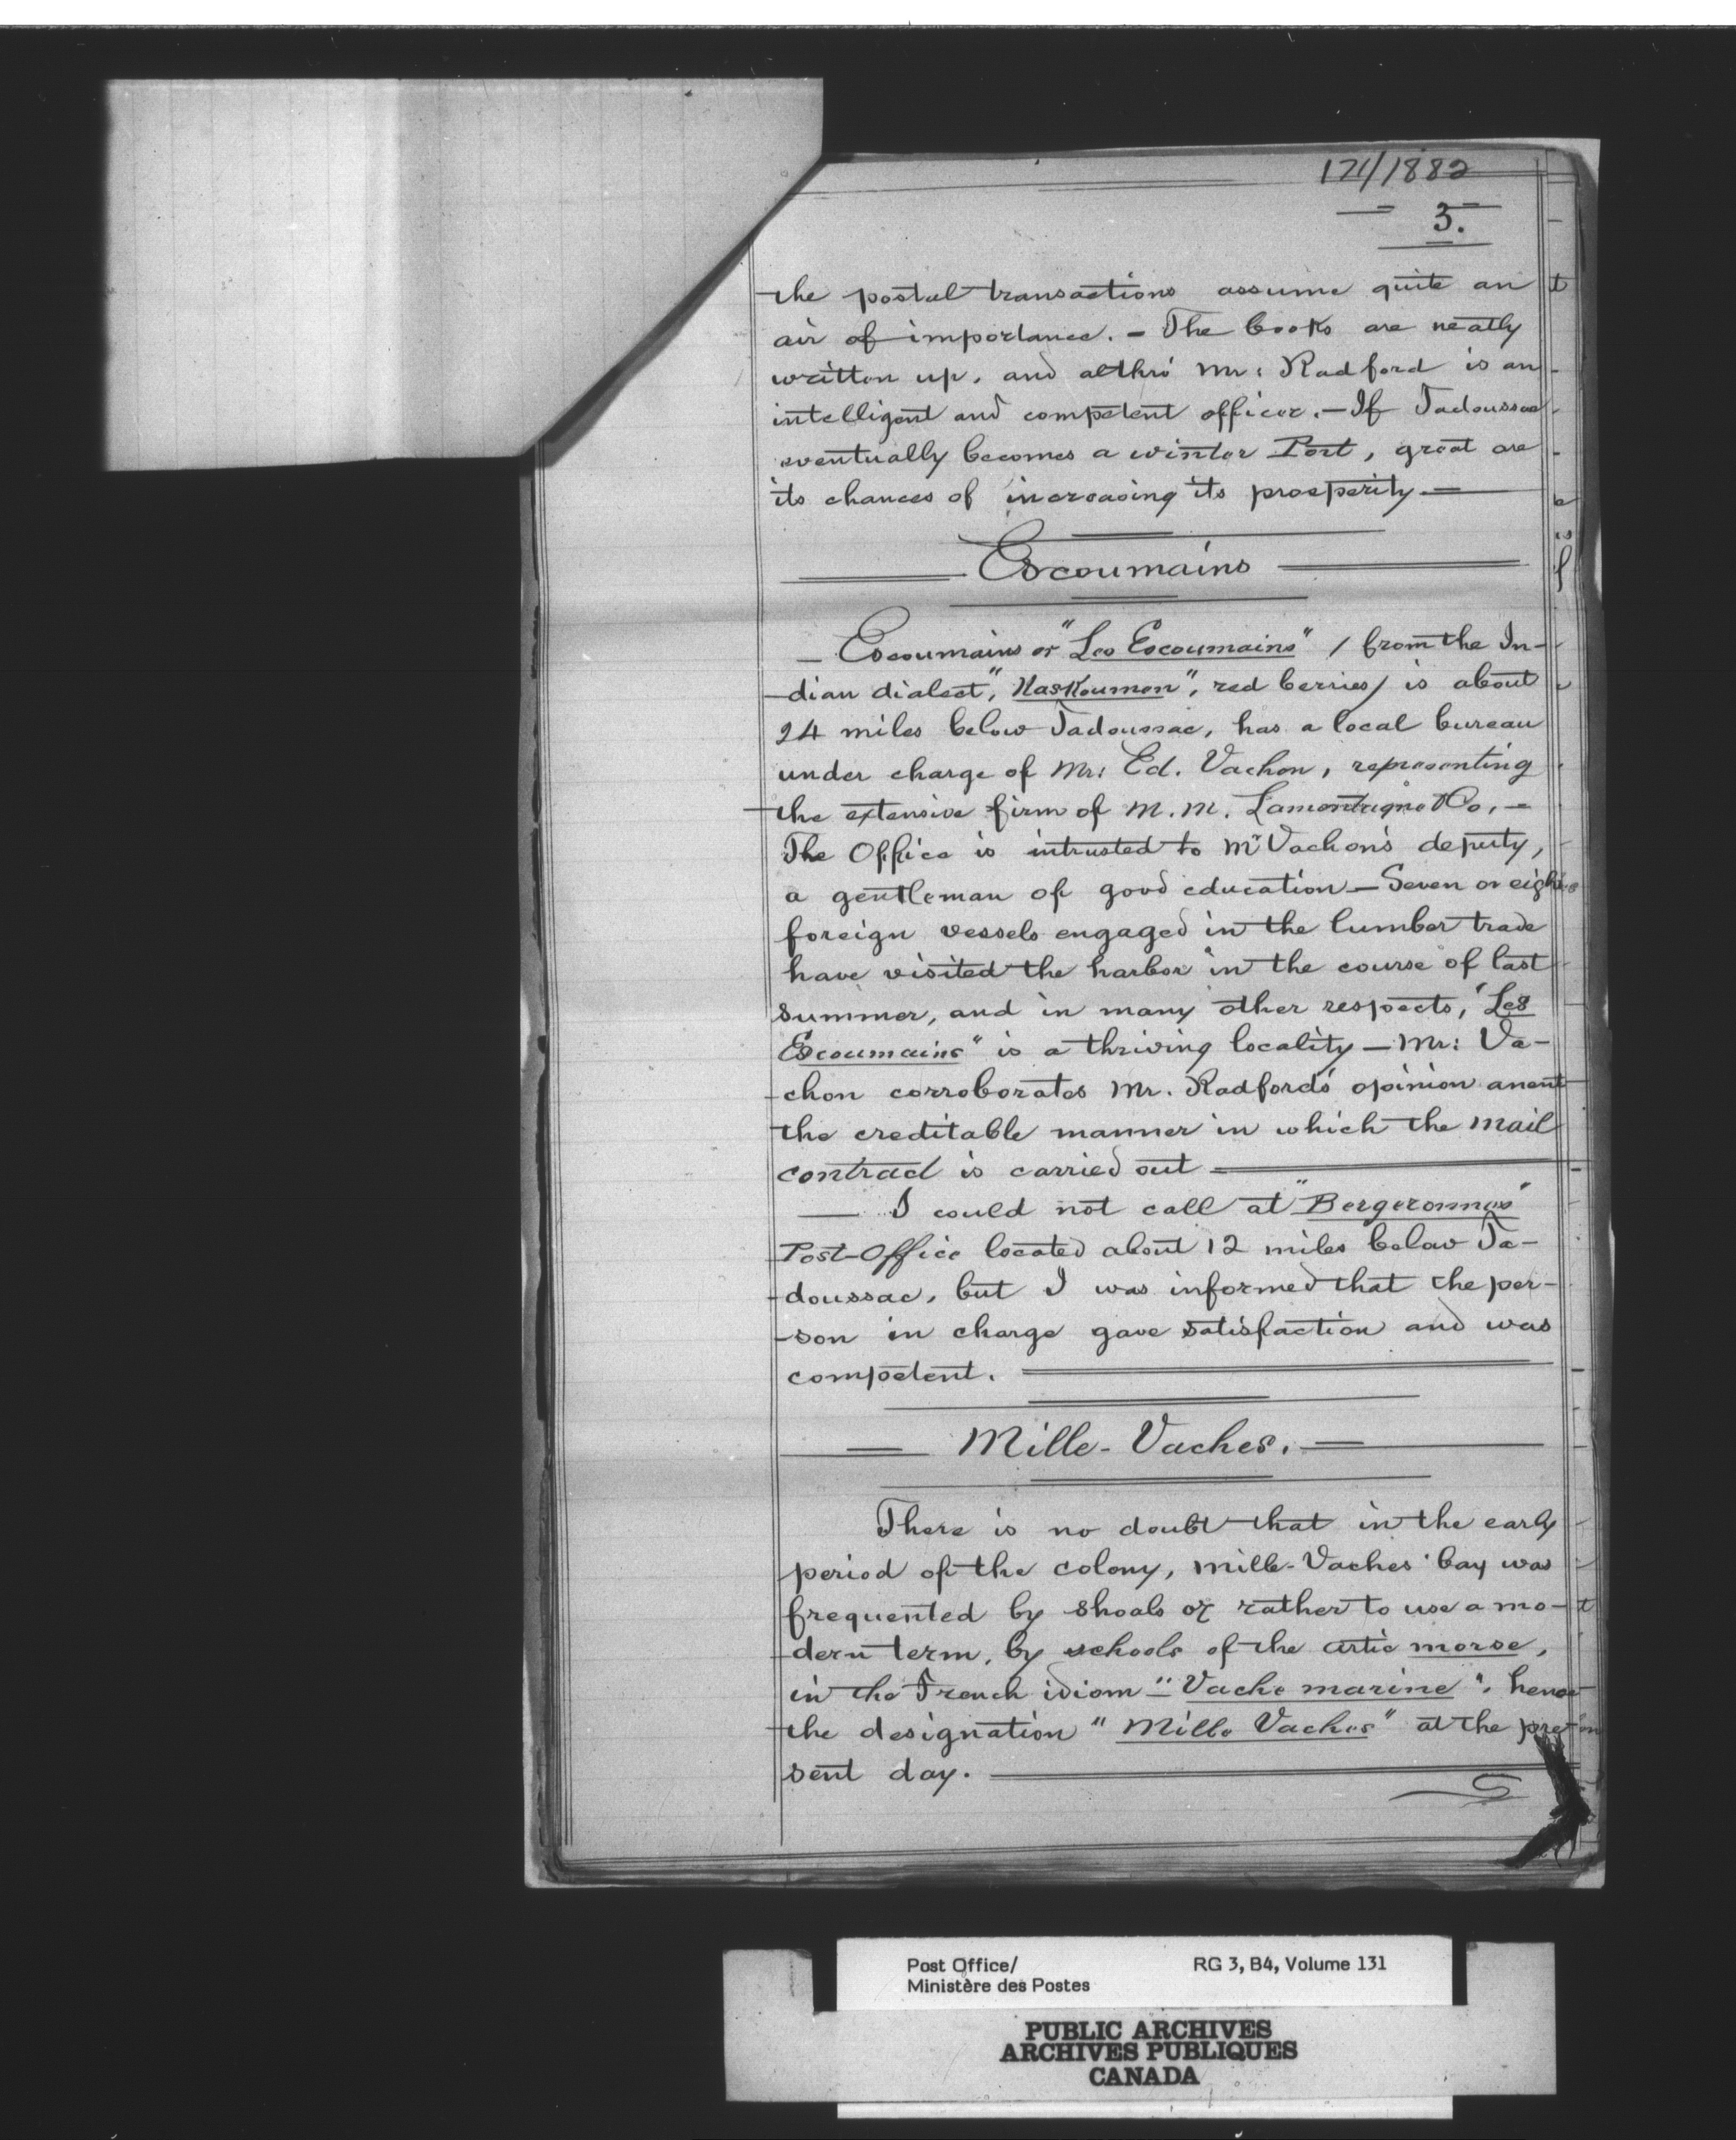 171/1882
3.
the postal transactions assume quite an
air of importance. - The books are neatly
written up, and althro' Mr: Radford is an
intelligent and competent officer. - If Tadoussac
eventually becomes a winter Port, great are
its chances of increasing its prosperity. -
Escoumains
- Escoumains or "Les Escoumains" / from the In-
-dian dialect, "Kaskoumen", red berries/ is about
24 miles below Tadoussac, has a local bureau
under charge of Mr: Ed. Vachon, representing
the extensive firm of M.M. Lamontagne & Co. -
The Office is intrusted to Mr Vachon's deputy,
a gentleman of good education - Seven or eight
foreign vessels engaged in the lumber trade
have visited the harbor in the course of last
summer, and in many other respects, "Les
Escoumains" is a thriving locality - Mr: Va-
-chon corroborates Mr. Radford's opinion anent
the creditable manner in which the mail
contract is carried out -
- I could not call at "Bergeronnes"
Post-Office located about 12 miles below Ta-
-doussac, but I was informed that the per-
-son in charge gave satisfaction and was
competent.
Mille-Vaches.
There is no doubt that in the early
period of the colony, Mille-Vaches bay was
frequented by shoals or rather to use a mo-
-dern term, by schools of the artic morse,
in the French idiom - "Vache marine", hence
the designation "Mille Vaches" at the pre-
sent day.
Post Office/ RG 3, B4, Volume 131
Ministère des Postes
PUBLIC ARCHIVES
ARCHIVES PUBLIQUES
CANADA